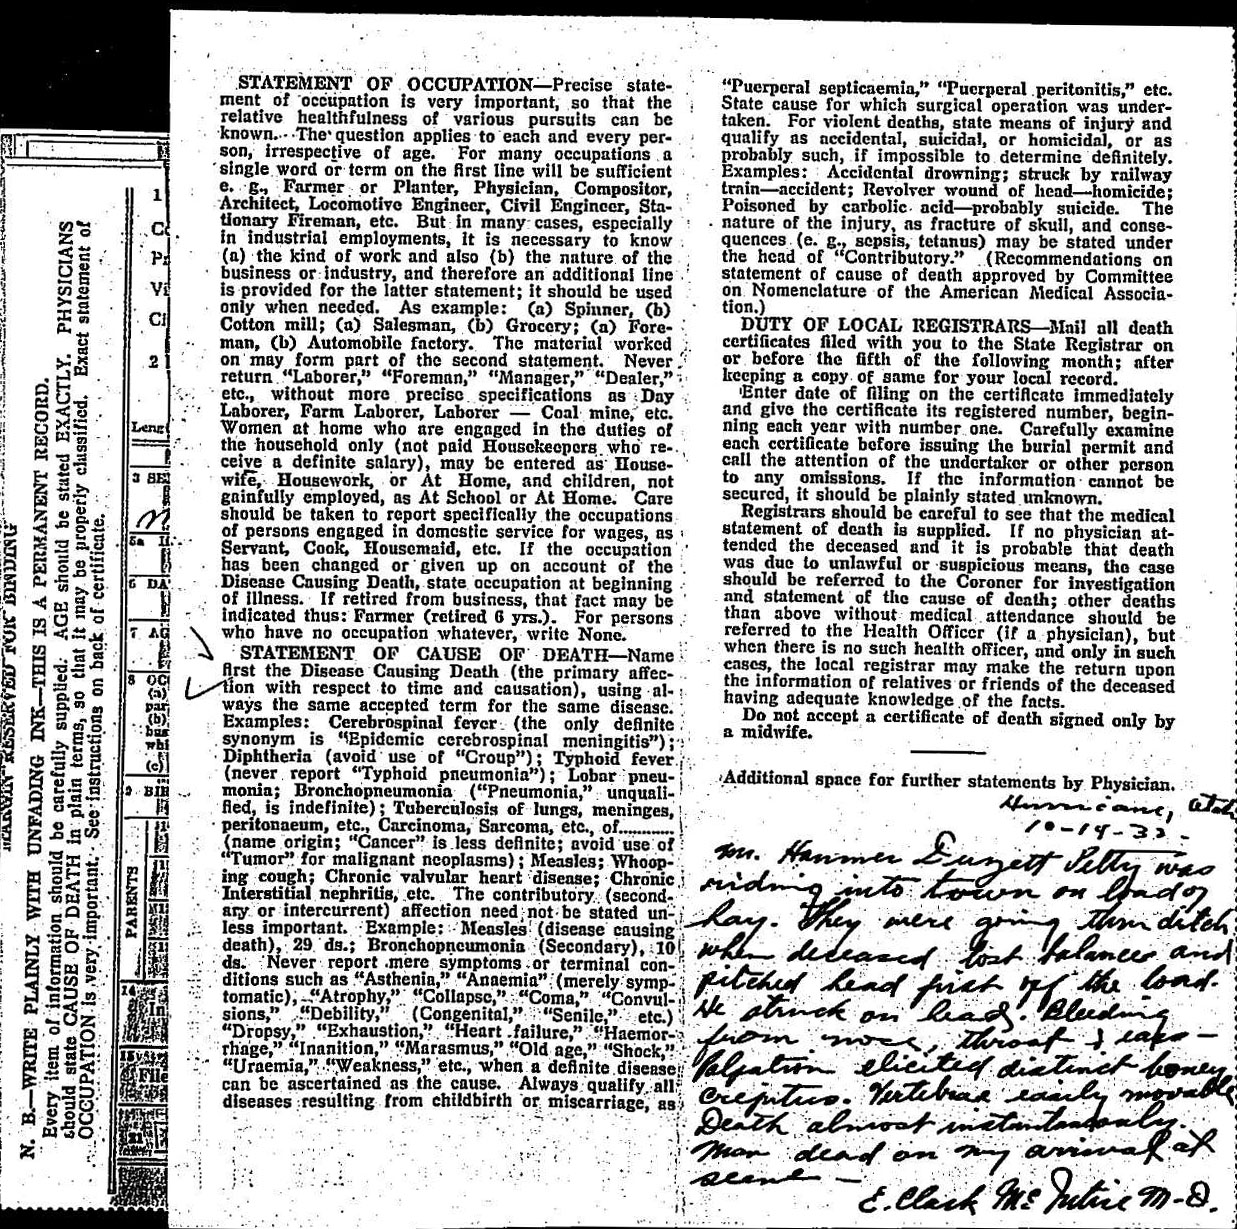 MARGIN RESERVED FOR BINDING
N. B.—WRITE PLAINLY WITH UNFADING INK—THIS IS A PERMANENT RECORD.
Every item of information should be carefully supplied. AGE should be stated EXACTLY. PHYSICIANS
should state CAUSE OF DEATH in plain terms, so that it may be properly classified. Exact statement of
OCCUPATION is very important. See instructions on back of certificate.
1
2
Leng
3 SE
5a
6 DA
7 AG
8 OC
(a)
(b)
(c)
9 BI
PARENTS
14
In
File
21
STATEMENT OF OCCUPATION—Precise state-
ment of occupation is very important, so that the
relative healthfulness of various pursuits can be
known. The question applies to each and every per-
son, irrespective of age. For many occupations a
single word or term on the first line will be sufficient
e. g., Farmer or Planter, Physician, Compositor,
Architect, Locomotive Engineer, Civil Engineer, Sta-
tionary Fireman, etc. But in many cases, especially
in industrial employments, it is necessary to know
(a) the kind of work and also (b) the nature of the
business or industry, and therefore an additional line
is provided for the latter statement; it should be used
only when needed. As example: (a) Spinner, (b)
Cotton mill; (a) Salesman, (b) Grocery; (a) Fore-
man, (b) Automobile factory. The material worked
on may form part of the second statement. Never
return "Laborer," "Foreman," "Manager," "Dealer,"
etc., without more precise specifications as Day
Laborer, Farm Laborer, Laborer — Coal mine, etc.
Women at home who are engaged in the duties of
the household only (not paid Housekeepers who re-
ceive a definite salary), may be entered as House-
wife, Housework, or At Home, and children, not
gainfully employed, as At School or At Home. Care
should be taken to report specifically the occupations
of persons engaged in domestic service for wages, as
Servant, Cook, Housemaid, etc. If the occupation
has been changed or given up on account of the
Disease Causing Death, state occupation at beginning
of illness. If retired from business, that fact may be
indicated thus: Farmer (retired 6 yrs.). For persons
who have no occupation whatever, write None.
STATEMENT OF CAUSE OF DEATH—Name
first the Disease Causing Death (the primary affec-
tion with respect to time and causation), using al-
ways the same accepted term for the same disease.
Examples: Cerebrospinal fever (the only definite
synonym is "Epidemic cerebrospinal meningitis");
Diphtheria (avoid use of "Croup"); Typhoid fever
(never report "Typhoid pneumonia"); Lobar pneu-
monia; Bronchopneumonia ("Pneumonia," unquali-
fied, is indefinite); Tuberculosis of lungs, meninges,
peritonaeum, etc., Carcinoma, Sarcoma, etc., of............
(name origin; "Cancer" is less definite; avoid use of
"Tumor" for malignant neoplasms); Measles; Whoop-
ing cough; Chronic valvular heart disease; Chronic
Interstitial nephritis, etc. The contributory (second-
ary or intercurrent) affection need not be stated un-
less important. Example: Measles (disease causing
death), 29 ds.; Bronchopneumonia (Secondary), 10
ds. Never report mere symptoms or terminal con-
ditions such as "Asthenia," "Anaemia" (merely symp-
tomatic), "Atrophy," "Collapse," "Coma," "Convul-
sions," "Debility," (Congenital," "Senile," etc.)
"Dropsy," "Exhaustion," "Heart failure," "Haemor-
rhage," "Inanition," "Marasmus," "Old age," "Shock,"
"Uraemia," "Weakness," etc., when a definite disease
can be ascertained as the cause. Always qualify all
diseases resulting from childbirth or miscarriage, as
"Puerperal septicaemia," "Puerperal peritonitis," etc.
State cause for which surgical operation was under-
taken. For violent deaths, state means of injury and
qualify as accidental, suicidal, or homicidal, or as
probably such, if impossible to determine definitely.
Examples: Accidental drowning; struck by railway
train—accident; Revolver wound of head—homicide;
Poisoned by carbolic acid—probably suicide. The
nature of the injury, as fracture of skull, and conse-
quences (e. g., sepsis, tetanus) may be stated under
the head of "Contributory." (Recommendations on
statement of cause of death approved by Committee
on Nomenclature of the American Medical Associa-
tion.)
DUTY OF LOCAL REGISTRARS—Mail all death
certificates filed with you to the State Registrar on
or before the fifth of the following month; after
keeping a copy of same for your local record.
Enter date of filing on the certificate immediately
and give the certificate its registered number, begin-
ning each year with number one. Carefully examine
each certificate before issuing the burial permit and
call the attention of the undertaker or other person
to any omissions. If the information cannot be
secured, it should be plainly stated unknown.
Registrars should be careful to see that the medical
statement of death is supplied. If no physician at-
tended the deceased and it is probable that death
was due to unlawful or suspicious means, the case
should be referred to the Coroner for investigation
and statement of the cause of death; other deaths
than above without medical attendance should be
referred to the Health Officer (if a physician), but
when there is no such health officer, and only in such
cases, the local registrar may make the return upon
the information of relatives or friends of the deceased
having adequate knowledge of the facts.
Do not accept a certificate of death signed only by
a midwife.
Additional space for further statements by Physician.
Hurricane, Utah
10-14-32-
Mr. Hammer Duzett Petty was
riding into town on load of
hay. They were going thru ditch
when deceased lost balance and
pitched head first off the load.
He struck on head. Bleeding
from nose, throat & ears—
Palpation elicited distinct boney
crepitus. Vertebrae easily movable
Death almost instantaneously.
Man dead on my arrival at
scene—
E. Clark McIntire M-D.